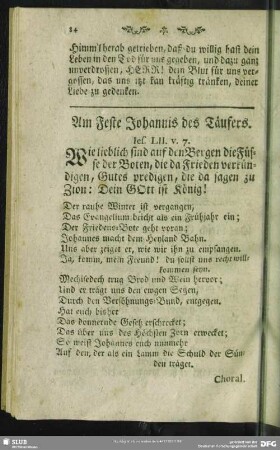 14
Himm'lherab getrieben, daß du willig hast dein
Leben in den Tod für uns gegeben, und dazu ganz
unverdrossen, HERR! dein Blut für uns ver-
gossen, das uns itzt kan kräftig tränken, deiner
Liebe zu gedenken.
Am Feste Johannis des Täufers.
Jes. LII. v. 7.
Wie lieblich sind auf den Bergen die Füs-
se der Boten, die da Frieden verkün-
digen, Gutes predigen, die da sagen zu
Zion: Dein GOtt ist König!
Der rauhe Winter ist vergangen,
Das Evangelium bricht als ein Frühjahr ein;
Der Friedens-Bote geht voran;
Johannes macht dem Heyland Bahn.
Uns aber zeiget er, wie wir ihn zu empfangen.
Ja, komm, mein Freund! du sollst uns recht will-
kommen seyn.
Melchisedech trug Brod und Wein hervor;
Und er trägt uns den ewgen Segen,
Durch den Versöhnungs-Bund, entgegen.
Hat euch bisher
Das donnernde Gesetz erschrecket;
Das über uns des Höchsten Zorn erwecket;
So weist Johannes euch nunmehr
Auf den, der als ein Lamm die Schuld der Sün-
den träget.
Choral.
SLUB